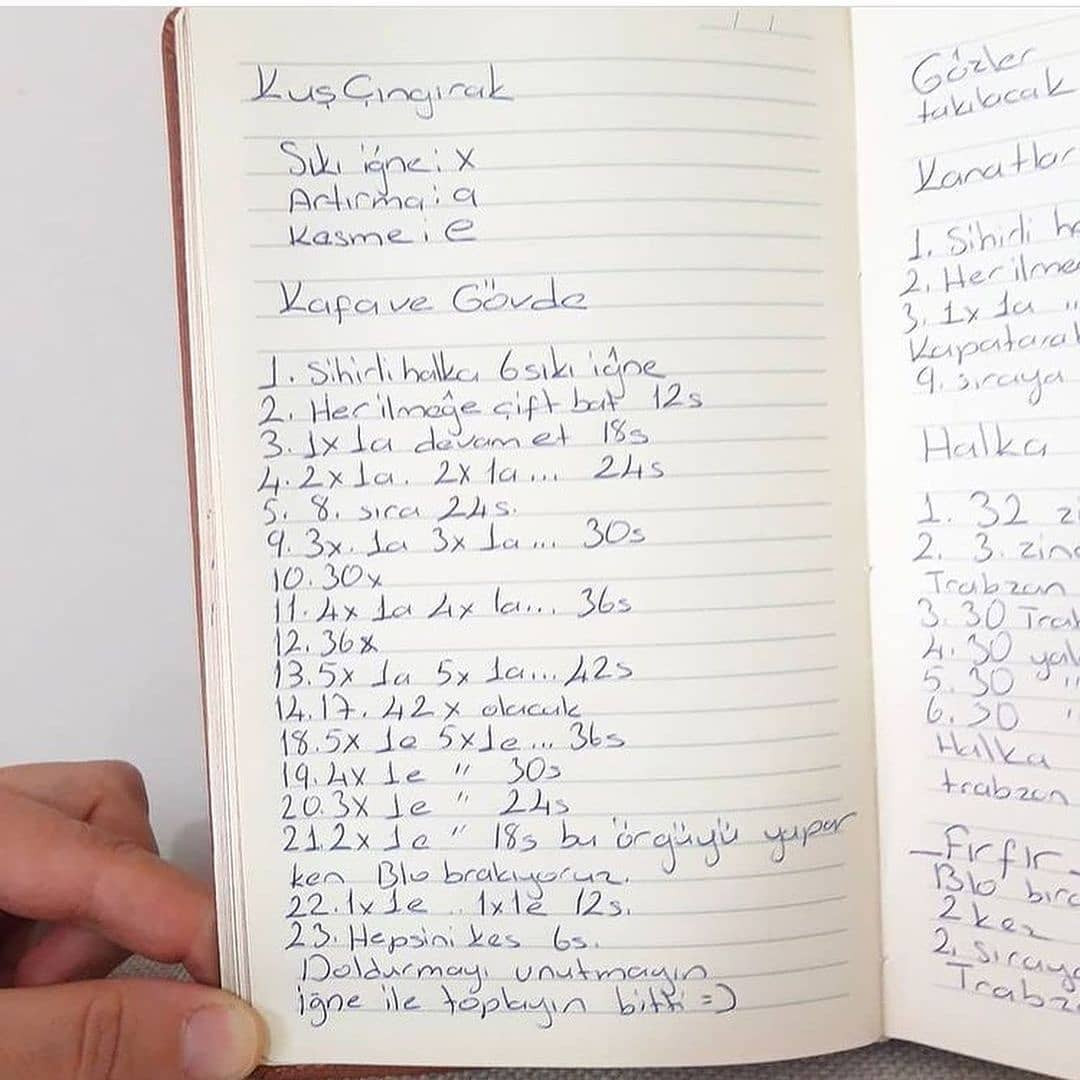 Kuş Çıngırak
Sıkı iğne: x
Artırma: a
Kesme: e
Kafa ve Gövde
1. Sihirli halka 6 sıkı iğne
2. Her ilmeğe çift bat 12s
3. 1x 1a devam et 18s
4. 2x 1a. 2x 1a... 24s
5. 8. sıra 24s.
9. 3x. 1a 3x 1a... 30s
10. 30x
11. 4x 1a 4x 1a... 36s
12. 36x
13. 5x 1a 5x 1a... 42s
14. 17. 42x olacak
18. 5x 1e 5x 1e... 36s
19. 4x 1e " 30s
20. 3x 1e " 24s
21. 2x 1e " 18s bu örgüyü yapar
ken Blo bırakıyoruz.
22. 1x 1e .. 1x 1e 12s.
23. Hepsini kes 6s.
Doldurmayı unutmayın
iğne ile toplayın bitti =)
Gözler
takılacak
Kanatlar
1. Sihirli ha
2. Her ilme
3. 1x 1a "
Kapatara
9. sıraya
Halka
1. 32 zi
2. 3. zinc
Trabzan
3. 30 Tra
4. 30 ya
5. 30 "
6. 30 "
Halka
trabzan
_Fırfır_
Blo bıra
2 kez
2. sıraya
Trabza